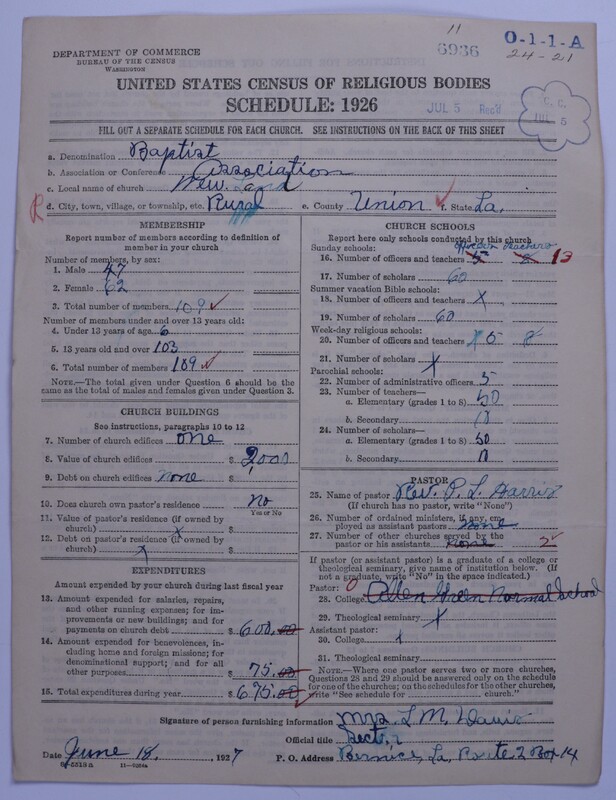 11
6936
O-1-1-A
24-21
DEPARTMENT OF COMMERCE
BUREAU OF THE CENSUS
WASHINGTON
UNITED STATES CENSUS OF RELIGIOUS BODIES
SCHEDULE: 1926
JUL 5 Rec'd
JUL 5
FILL OUT A SEPARATE SCHEDULE FOR EACH CHURCH. SEE INSTRUCTIONS ON THE BACK OF THIS SHEET
a. Denomination Baptist
b. Association or Conference Association
c. Local name of church New Land
R d. City, town, village, or township, etc. Rural e. County Union f. State La.
MEMBERSHIP
Report number of members according to definition of member in your church
Number of members, by sex:
1. Male 47
2. Female 62
3. Total number of members 109
Number of members under and over 13 years old:
4. Under 13 years of age 6
5. 13 years old and over 103
6. Total number of members 109
NOTE.—The total given under Question 6 should be the same as the total of males and females given under Question 3.
CHURCH BUILDINGS
See instructions, paragraphs 10 to 12
7. Number of church edifices one
8. Value of church edifices $ 2000
9. Debt on church edifices none $
10. Does church own pastor's residence No
Yes or No
11. Value of pastor's residence (if owned by church) x $
12. Debt on pastor's residence (if owned by church) x $
EXPENDITURES
Amount expended by your church during last fiscal year
13. Amount expended for salaries, repairs, and other running expenses; for improvements or new buildings; and for payments on church debt $ 600.00
14. Amount expended for benevolences, including home and foreign missions; for denominational support; and for all other purposes $ 75.00
15. Total expenditures during year $ 675.00
CHURCH SCHOOLS
Report here only schools conducted by this church
Sunday schools: Officers Teachers
16. Number of officers and teachers 5 8 13
17. Number of scholars 60
Summer vacation Bible schools:
18. Number of officers and teachers x
19. Number of scholars 60
Week-day religious schools:
20. Number of officers and teachers x 5 8
21. Number of scholars x
Parochial schools:
22. Number of administrative officers 5
23. Number of teachers—
a. Elementary (grades 1 to 8) 50
b. Secondary 10
24. Number of scholars—
a. Elementary (grades 1 to 8) 50
b. Secondary
PASTOR
25. Name of pastor Rev. P. L. Harris
(If church has no pastor, write "None")
26. Number of ordained ministers, if any, employed as assistant pastors none
27. Number of other churches served by the pastor or his assistants none 2
If pastor (or assistant pastor) is a graduate of a college or theological seminary, give name of institution below. (If not a graduate, write "No" in the space indicated.)
Pastor: 0
28. College Allen Green Normal School
29. Theological seminary x
Assistant pastor:
30. College x
31. Theological seminary
NOTE.—Where one pastor serves two or more churches, Questions 28 and 29 should be answered only on the schedule for one of the churches; on the schedules for the other churches, write "See schedule for church."
Signature of person furnishing information Mrs. L M. Davis
Official title Sect.
Date June 18, 1927 P. O. Address Bernice, La, Route 2 Box 14